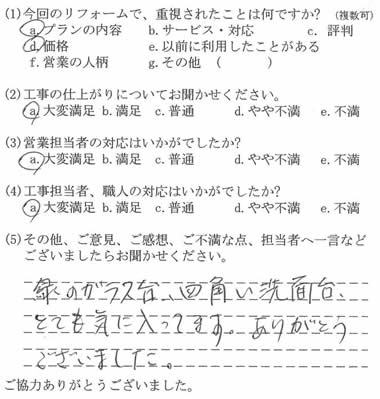 (1)今回のリフォームで、重視されたことは何ですか? (複数可)
a.プランの内容 b.サービス・対応 c. 評判
d.価格 e.以前に利用したことがある
f.営業の人柄 g.その他 ( )
(2)工事の仕上がりについてお聞かせください。
a.大変満足 b.満足 c.普通 d.やや不満 e.不満
(3)営業担当者の対応はいかがでしたか?
a.大変満足 b.満足 c.普通 d.やや不満 e.不満
(4)工事担当者、職人の対応はいかがでしたか?
a.大変満足 b.満足 c.普通 d.やや不満 e.不満
(5)その他、ご意見、ご感想、ご不満な点、担当者へ一言など
ございましたらお聞かせください。
緑のガラス台、四角い洗面台、
とても気に入ってます。ありがとう
ございました。
ご協力ありがとうございました。